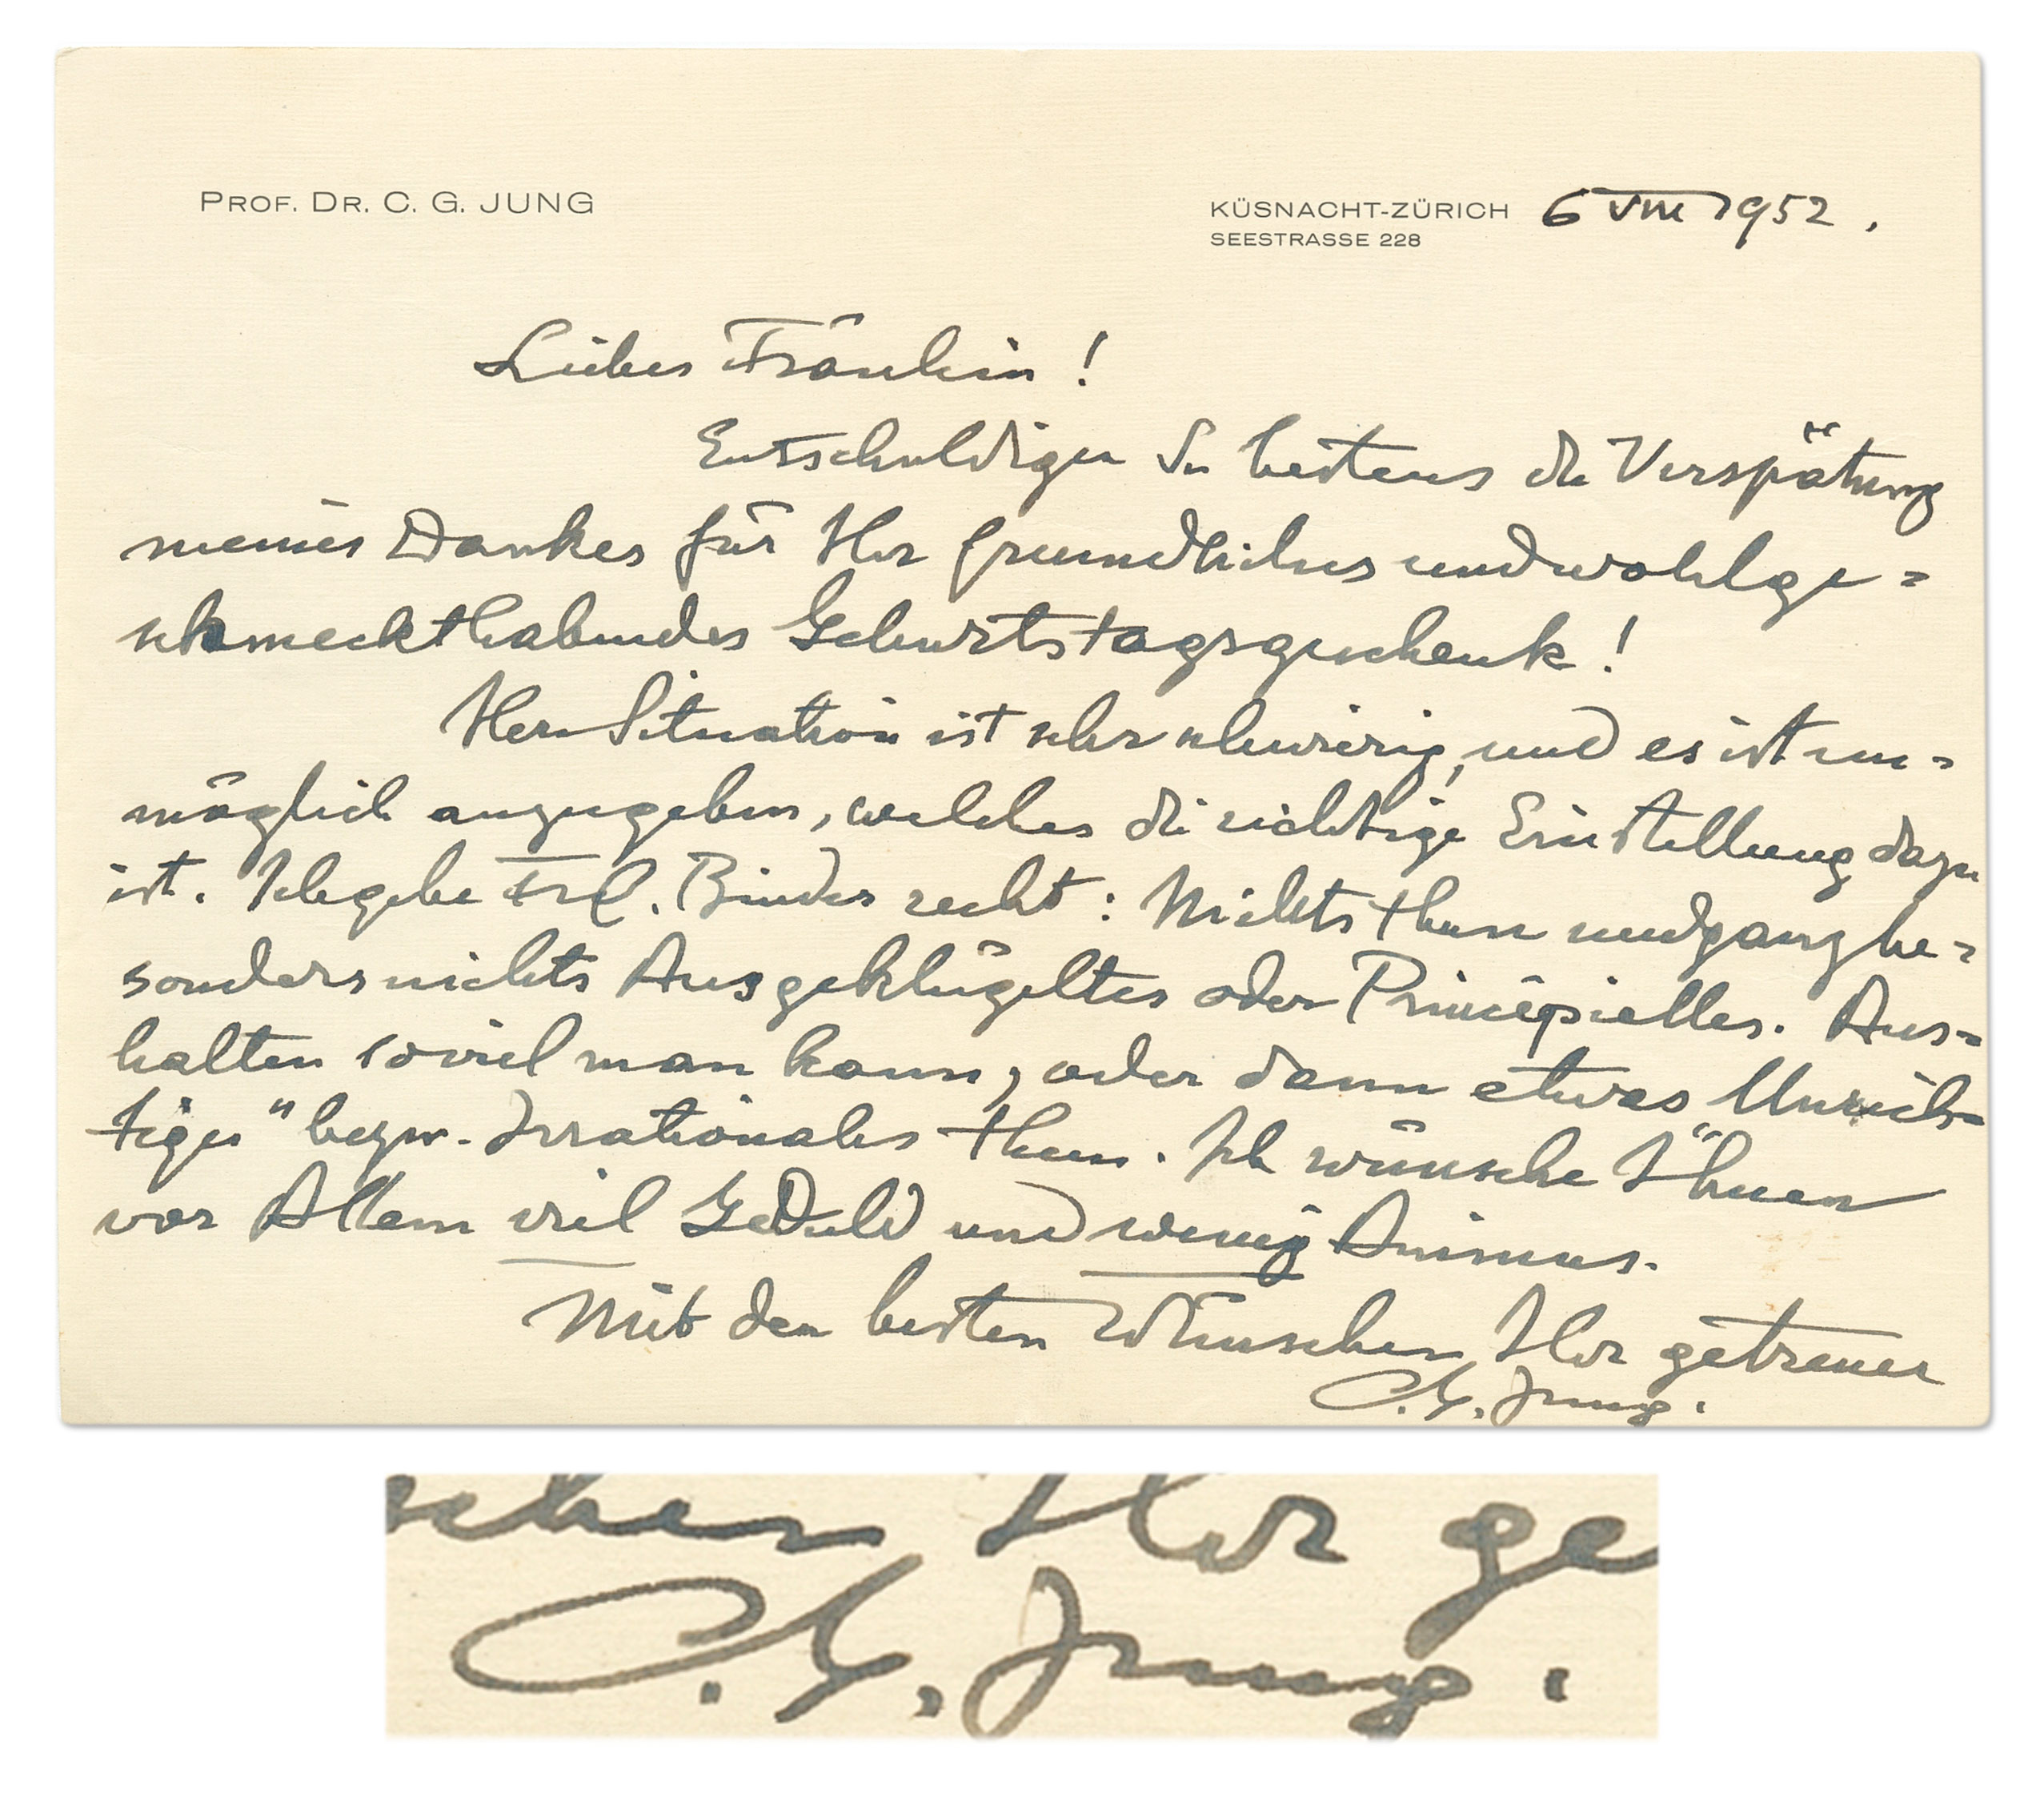 PROF. DR. C. G. JUNG
KÜSNACHT-ZÜRICH 6 VIII 1952.
SEESTRASSE 228
Liebes Fräulein!
Entschuldigen Sie bestens die Verspätung
meines Dankes für Ihr freundliches und wohlge=
schmeckthabendes Geburtstagsgeschenk!
Ihre Situation ist sehr schwierig, und es ist un=
möglich anzugeben, welches die richtige Einstellung dazu
ist. Ich gebe Frl. Binder recht: Nichts thun und ganz be=
sonders nichts Ausgeklügeltes oder Principielles. Aus=
halten soviel man kann, oder dann etwas Unrich=
tiges" bezw. Irrationales thun. Ich wünsche Ihnen
vor Allem viel Geduld und wenig Animus.
Mit den besten Wünschen Ihr getreuer
C. G. Jung.
schen Ihr ge
C. G. Jung.